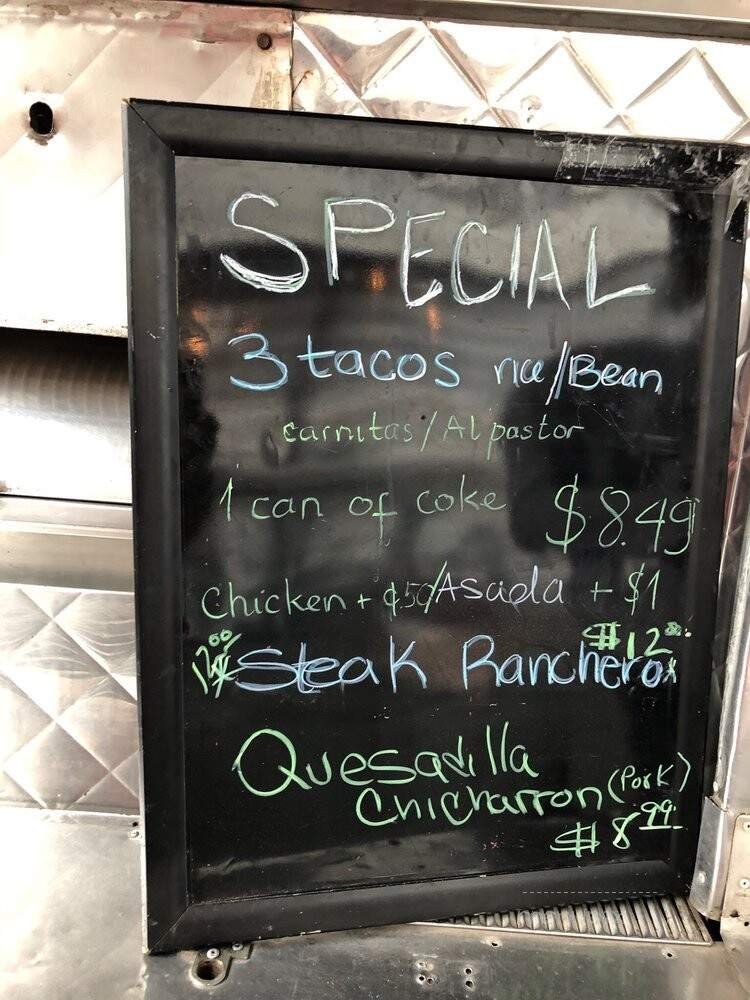 SPECIAL
3 tacos rice//Bean
carnitas/Al pastor
1 can of coke $8.49
Chicken + ¢50/Asada + $1
$12.00
12.00 Steak Ranchero
Quesadilla
Chicharron (Pork)
$8.99